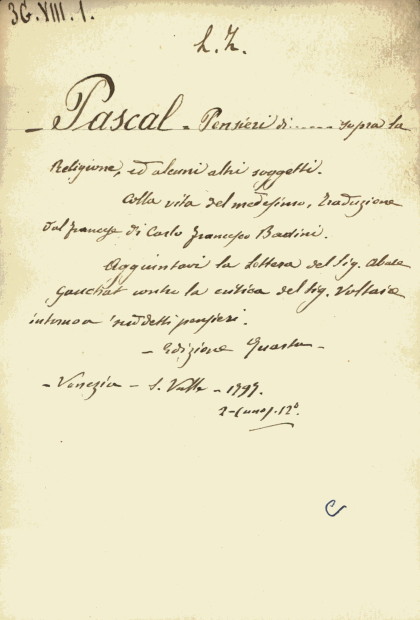 3G.XIII.1.
L. Z.
- Pascal - Pensieri di ...... sopra la
Religione, ed alcuni altri soggetti.
Colla vita del medesimo, traduzione
dal francese di Carlo Francesco Badini.
Aggiuntavi la lettera del Sig. Abate
Gauchat contro la critica del Sig. Voltaire
intorno a' suddetti pensieri.
- Edizione Quarta -
- Venezia - S. Valle - 1797.
12º.